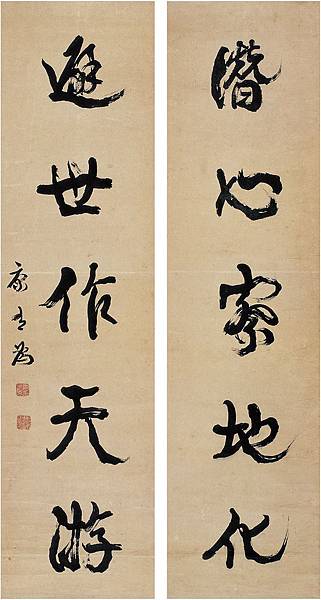 潛心察地化
遯世作天游
康有為